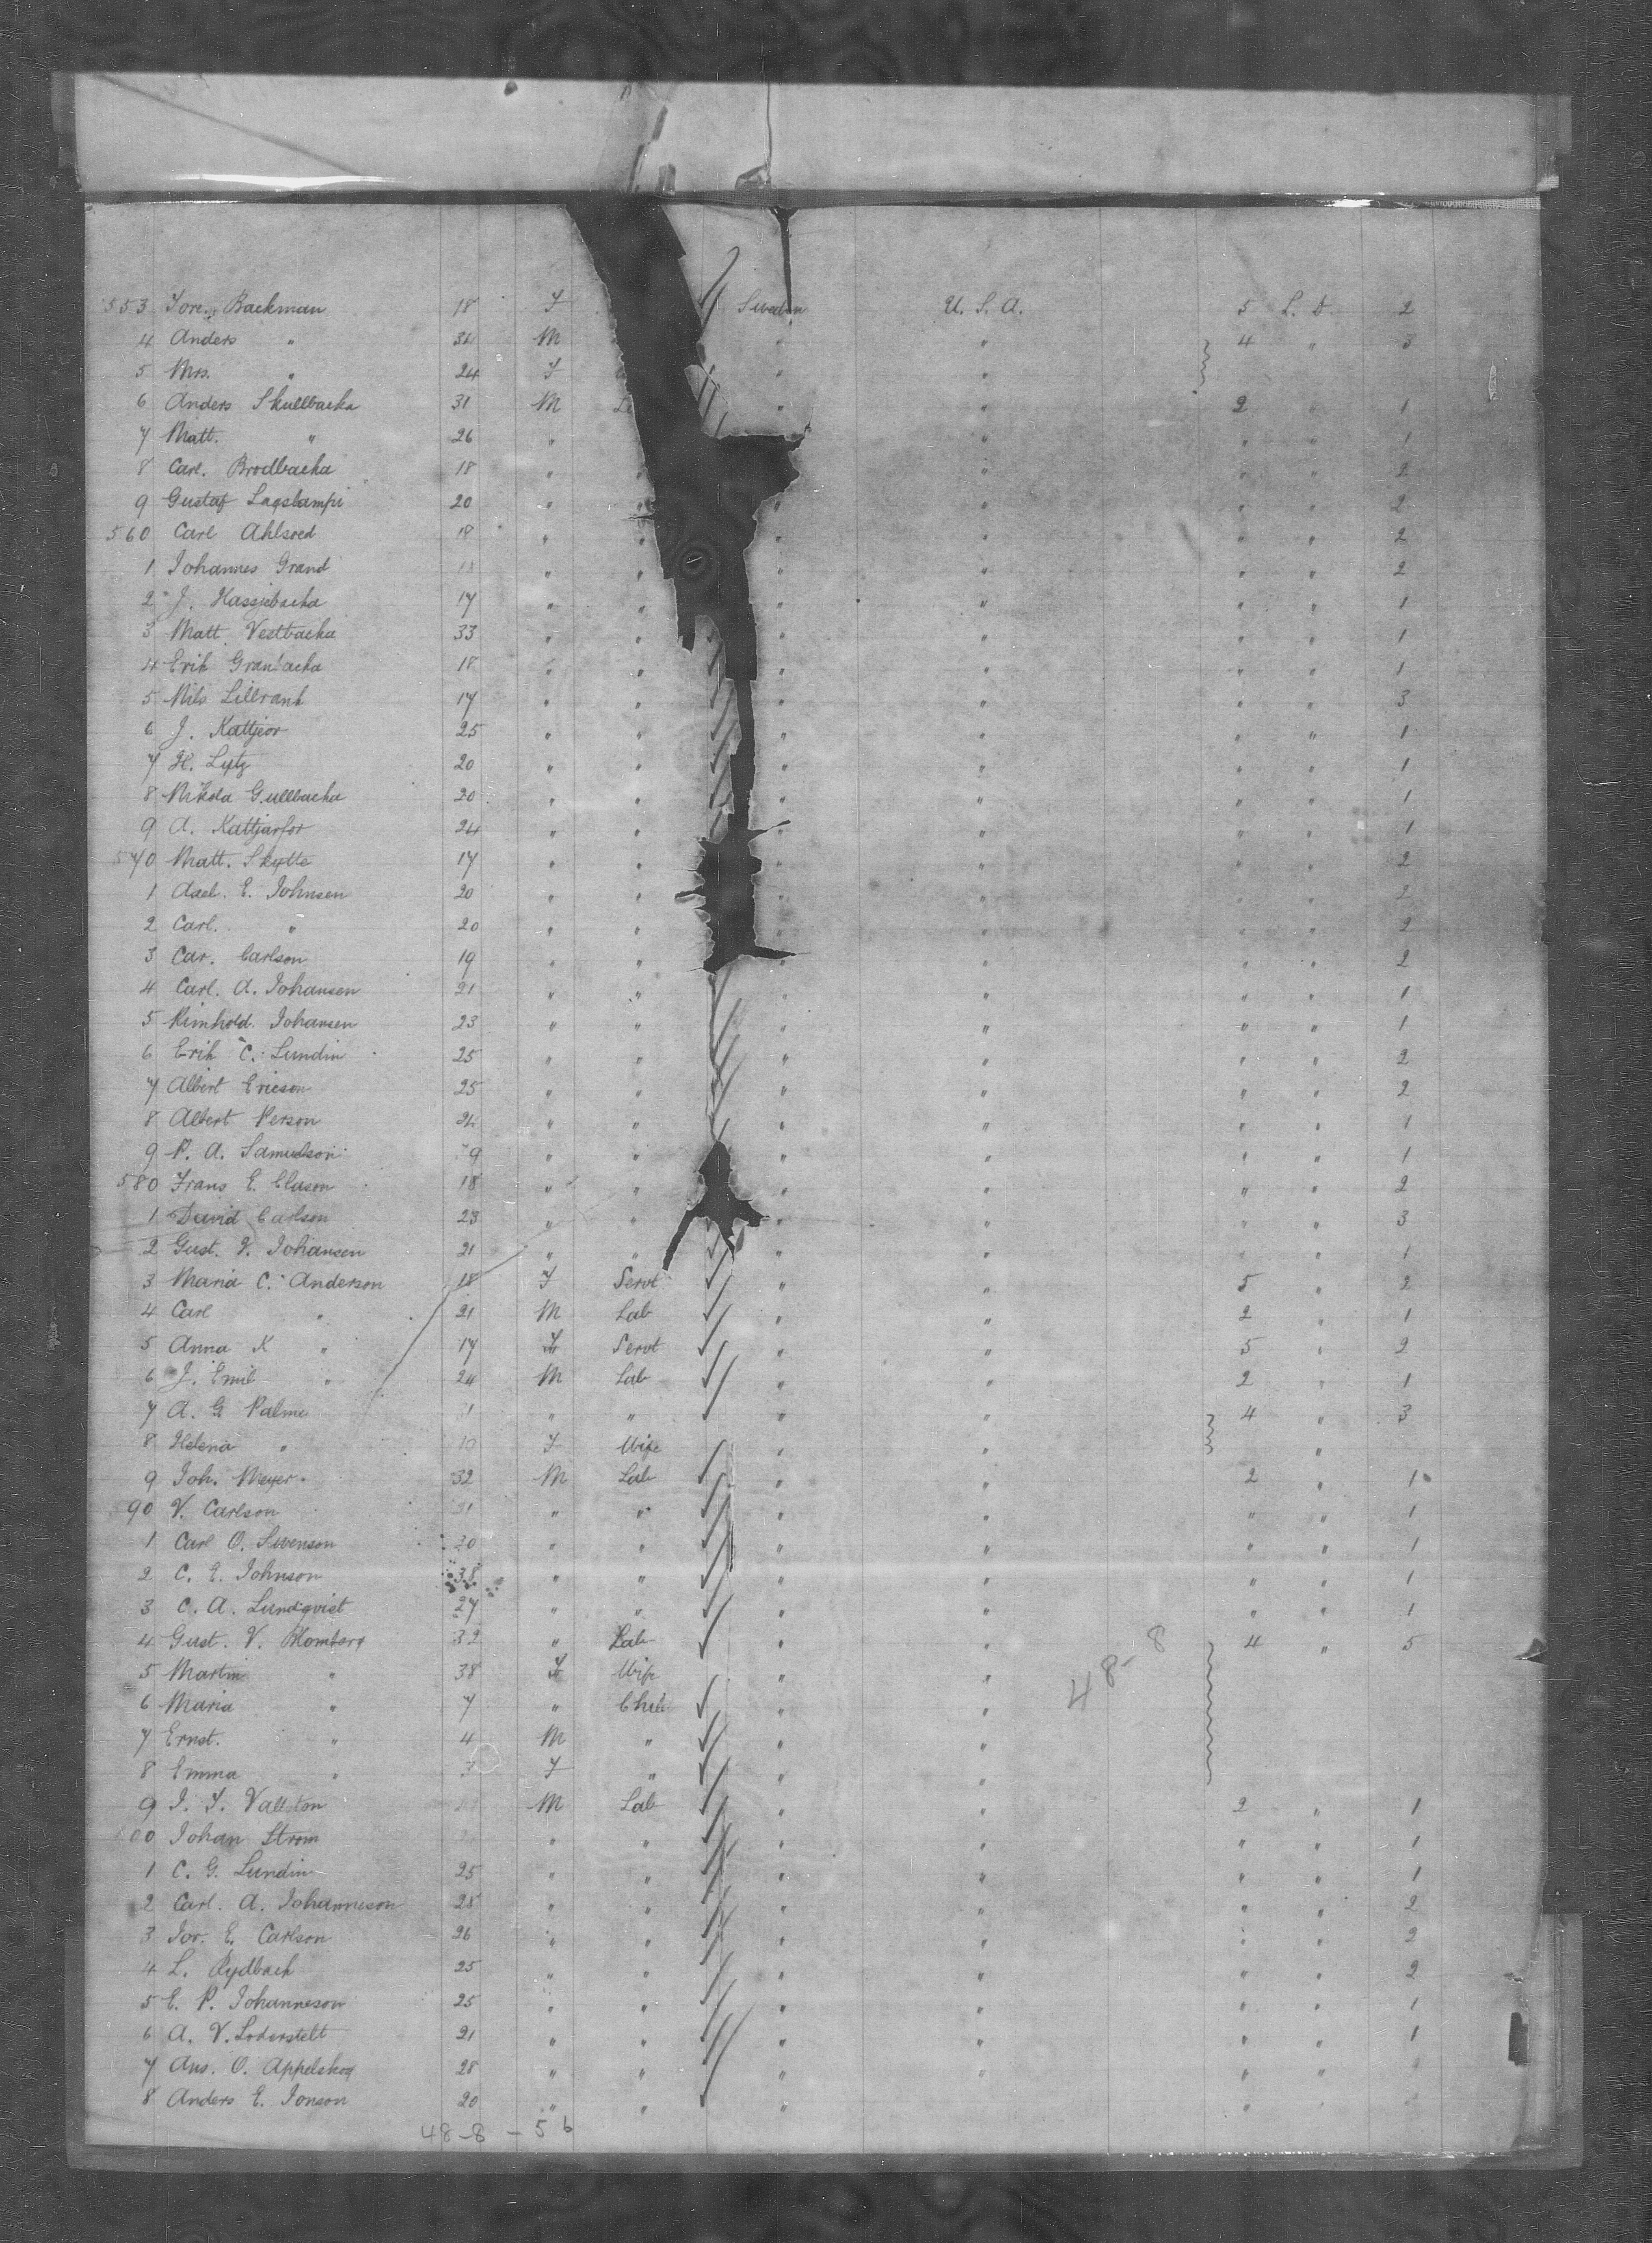 553 Jore. Backman 18 F Sweden U. S. A. 5 L. D. 2
4 Anders " 34 M " " 4 " 3
5 Mrs. " 24 F " "
6 Anders Skullbacka 31 M " " 2 " 1
7 Matt. " 26 " " " " 1
8 Carl. Brodbacka 18 " " " " " 2
9 Gustaf Lagstampi 20 " " " " " " 2
560 Carl Ahlsved 18 " " " " " " 2
1 Johannes Grand " " " " " " 2
2 J. Hassjebacka 17 " " " " " " 1
3 Matt Vestbacka 33 " " " " " " 1
4 Erik Granbacka 18 " " " " " " 1
5 Nils Lillrank 17 " " " " " " 3
6 J. Kattjeor 25 " " " " " " 1
7 H. Lytz 20 " " " " " " 1
8 Nikola Gullbacka 20 " " " " " " 1
9 A. Kattjarfor 24 " " " " " " 1
570 Matt. Skytte 17 " " " " " " 2
1 Axel. E. Johnsen 20 " " " " " " 2
2 Carl. " 20 " " " " " " 2
3 Car. Carlson 19 " " " " " " 2
4 Carl. A. Johansen 21 " " " " " " 1
5 Rimhold. Johansen 23 " " " " " " 1
6 Erik C. Lundin 25 " " " " " " 2
7 Albert Ericson 25 " " " " " " 2
8 Albert Person 24 " " " " " " 1
9 P. A. Samuelson 9 " " " " " " 1
580 Frans E. Clason 18 " " " " " " 2
1 David Carlson 23 " " " " " " 3
2 Gust. V. Johansen 21 " " " " " " 1
3 Maria C. Anderson 18 F Servt " " 5 " 2
4 Carl " 21 M Lab " " 2 " 1
5 Anna K " 17 F Servt " " 5 " 2
6 J. Emil " 24 M Lab " " 2 " 1
7 A. G. Palme " " " " 4 " 3
8 Helena " F Wife " " "
9 Joh. Meyer. 32 M Lab " " 2 " 1
90 V. Carlson " " " " " " 1
1 Carl O. Swenson 20 " " " " " " 1
2 C. E. Johnson 38 " " " " " " 1
3 C. A. Lundqvist 27 " " " " " " 1
4 Gust. V. Blomberg 32 " Lab " " 4 " 5
48-8
5 Martin " 38 F Wife " "
6 Maria " 7 " Child " "
7 Ernst. " 4 M " " "
8 Emma " 3 F " " "
9 J. F. Vallston M Lab " " 2 " 1
600 Johan Strom " " " " " " 1
1 C. G. Lundin 25 " " " " " " 1
2 Carl. A. Johanneson 28 " " " " " " 2
3 Jor. E. Carlson 26 " " " " " " 2
4 L. Rydback 25 " " " " " " 2
5 E. P. Johanneson 25 " " " " " " 1
6 A. V. Loderstelt 21 " " " " " " 1
7 Aus. O. Appelskog 28 " " " " " "
8 Anders E. Jonson 20 " " " "
48-8 - 56